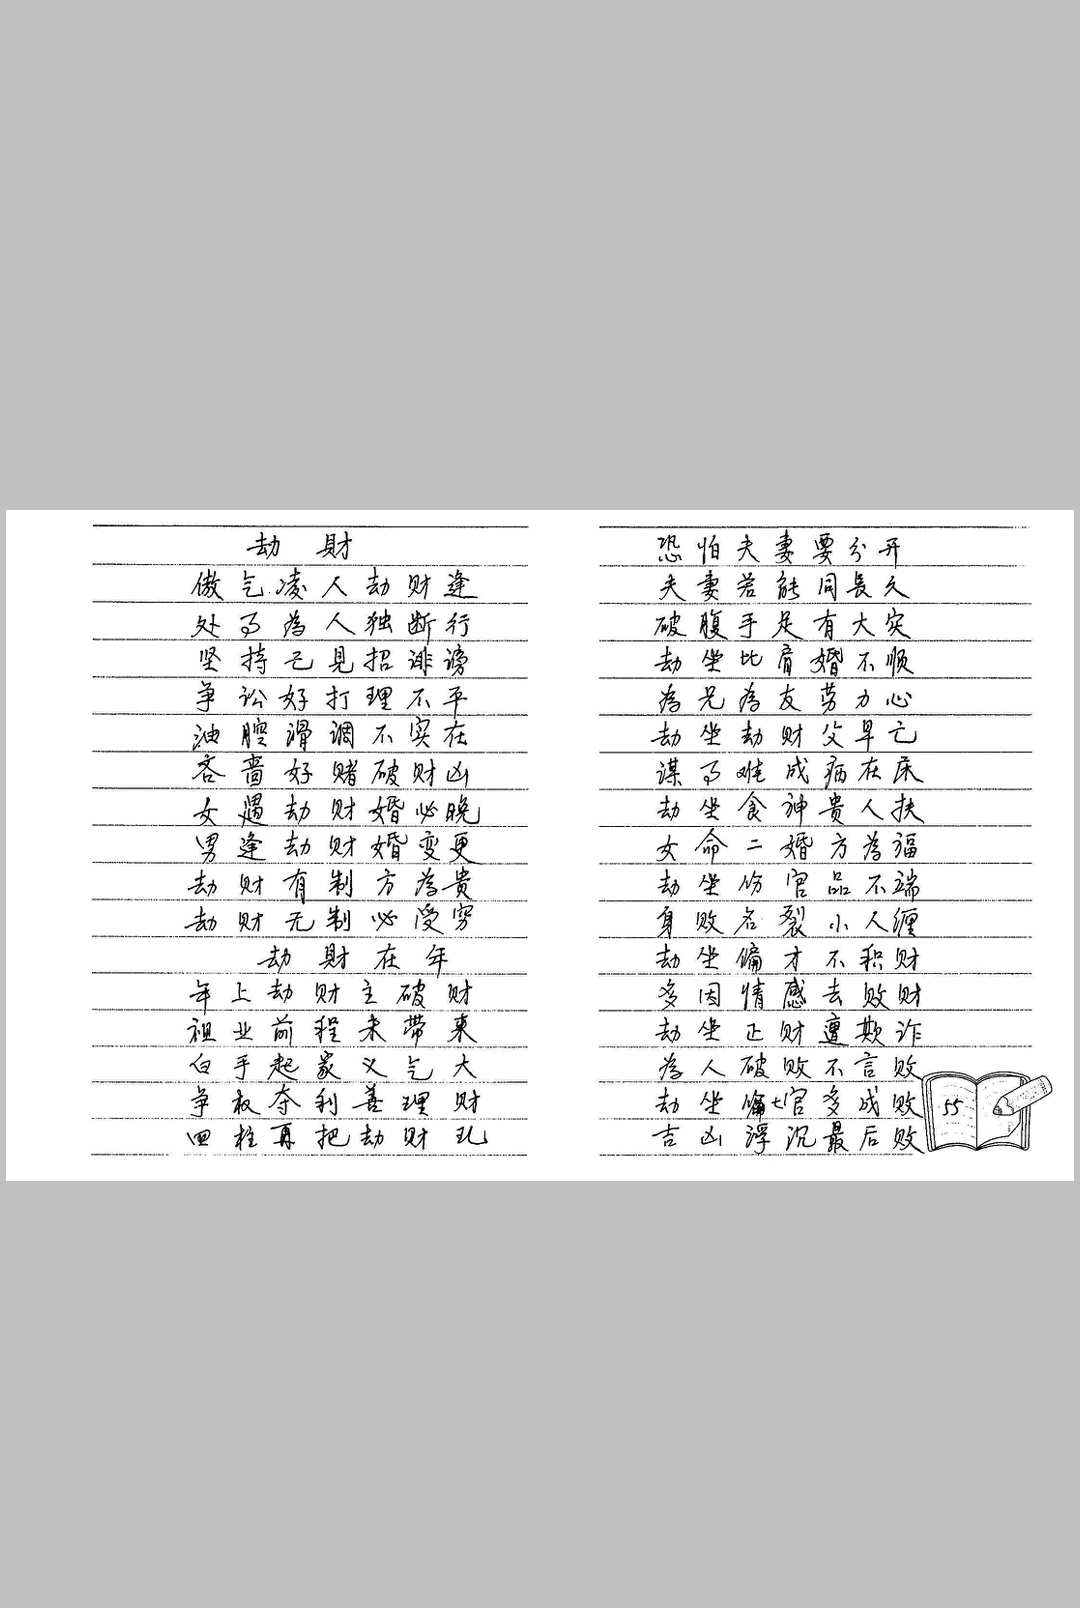 劫 財
傲气凌人劫财逢
处事為人独断行
坚持己見招诽谤
争讼好打理不平
油腔滑调不实在
吝啬好赌破财凶
女遇劫财婚必晚
男逢劫财婚变更
劫财有制方為貴
劫财无制必受穷
劫財在年
年上劫财主破财
祖业前程未带来
白手起家义气大
争权夺利善理财
四柱再把劫财乱
恐怕夫妻要分开
夫妻若能同長久
破腹手足有大灾
劫坐比肩婚不顺
為兄為友劳力心
劫坐劫财父早亡
谋事难成病在床
劫坐食神贵人扶
女命二婚方為福
劫坐伤官品不端
身败名裂小人缠
劫坐偏才不积财
多因情感去败财
劫坐正财遭欺诈
為人破败不言败
劫坐七官多成败
吉凶浮沉最后败
55